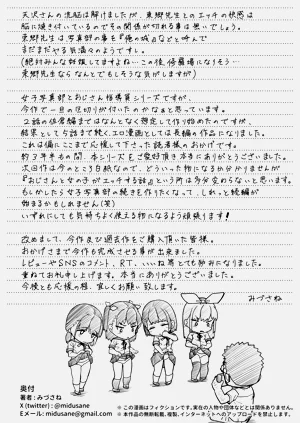 天沢さんの洗脳は解けましたが、東郷先生とのエッチの快感は
脳に焼き付いているのでその関係が切れる事は無いでしょう。
東郷先生は写真部の事を『俺の城』などと呼んで
まだまだやる気満々のようですし。
(絶対みんな妊娠してますよね…この後、修羅場になりそう…
東郷先生ならなんとでもしそうな気がしますが)
女子写真部とおじさん指導員シリーズですが、
今作で一旦の区切りが付いたのかなぁと思っています。
2話の結末編まではなんとなく想定して作り始めたのですが、
結果として5話まで続く、エロ漫画としては長編の作品になりました。
これは偏にここまで応援して下さった読者様のおかげです。
約3年半もの間、本シリーズをご愛顧頂き本当にありがとうございました。
次回作は今のところ白紙なので、どういった物になるか分かりませんが
『おじさんと女の子がエッチする話』という所は多分変わらないと思います。
もしかしたら女子写真部の続きを作りたくなって、しれっと続編が
始まるかもしれません(笑)
いずれにしても気持ちよく使える物になるよう頑張ります!
改めまして、今作及び過去作をご購入頂いた皆様。
おかげさまで今作も完成させる事が出来ました。
レビューやSNSのコメント、RT、いいね等とても励みになりました。
重ねてお礼申し上げます。本当にありがとうございました。
今後とも応援の程、宜しくお願い致します。
みづさね
奥付
著者:みづさね
X(twitter):@midusane
Eメール:midusane@gmail.com
※この漫画はフィクションです。実在の人物や団体などとは関係ありません。
※本作品の無断転載、複製、インターネットへのアップロードを禁止します。